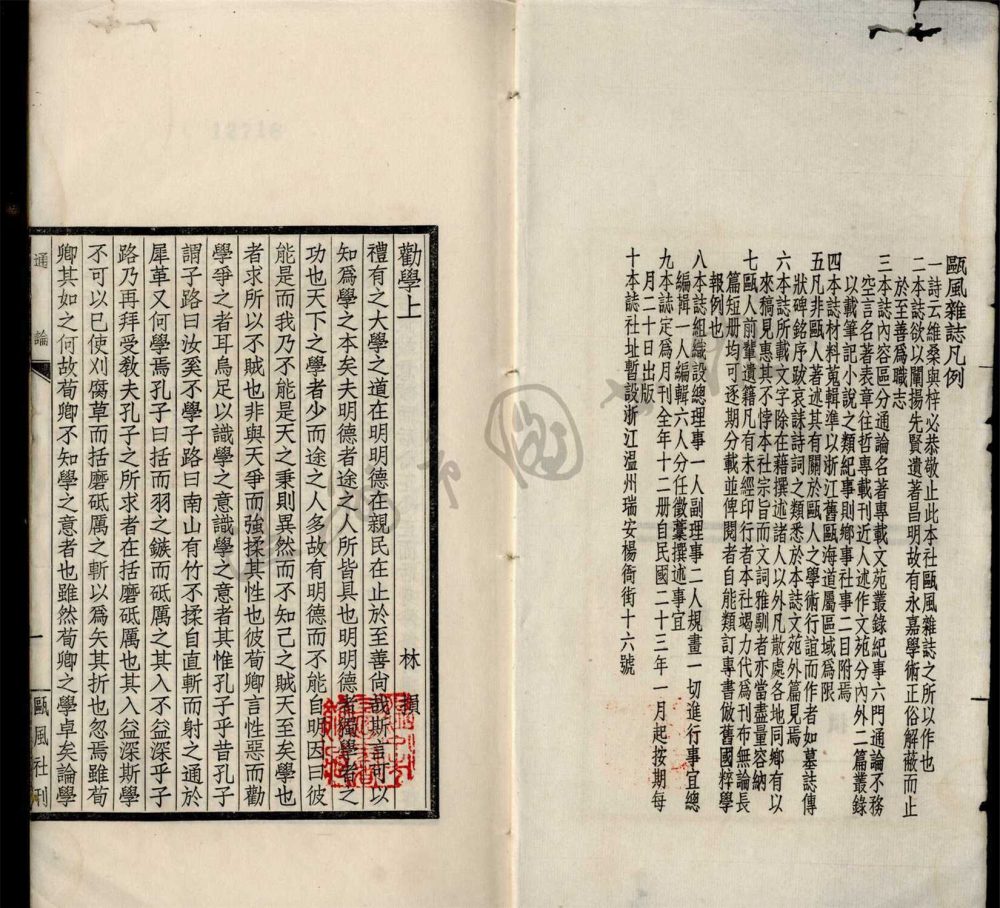 甌風雜誌凡例
一詩云維桑與梓必恭敬止此本社甌風雜誌之所以作也
二本誌欲以闡揚先賢遺著昌明故有永嘉學術正俗解蔽而止
於至善爲職志
三本誌內容區分通論名著專載文苑叢錄紀事六門通論不務
空言名著表章往哲專載刊近人述作文苑分內外二篇叢錄
以載筆記小說之類紀事則鄉事社事二目附焉
四本誌材料蒐輯準以浙江舊甌海道屬區域爲限
五凡非甌人著述其有關於甌人之學術行誼而作者如墓誌傳
狀碑銘序跋哀誄詩詞之類悉於本誌文苑外篇見焉
六本誌所載文字除在籍撰述諸人以外凡散處各地同鄉有以
來稿見惠其不悖本社宗旨而文詞雅馴者亦當盡量容納
七甌人前輩遺籍凡有未經印行者本社竭力代爲刊布無論長
篇短册均可逐期分載並俾閱者自能類訂專書倣舊國粹學
報例也
八本誌組織設總理事一人副理事二人規畫一切進行事宜總
編輯一人編輯六人分任徵藁撰述事宜
九本誌定爲月刊全年十二册自民國二十三年一月起按期每
月二十日出版
十本誌社址暫設浙江温州瑞安楊衙街十六號
勸學上
林損
禮有之大學之道在明明德在親民在止於至善尙哉斯言可以
知爲學之本矣夫明德者途之人所皆具也明明德者獨學者之
功也天下之學者少而途之人多故有明德而不能自明因曰彼
能是而我乃不能是天之秉則異然而不知己之賊天至矣學也
者求所以不賊也非與天爭而強揉其性也彼荀卿言性惡而勸
學爭之者耳烏足以識學之意識學之意者其惟孔子乎昔孔子
謂子路曰汝奚不學子路曰南山有竹不揉自直斬而射之通於
犀革又何學焉孔子曰括而羽之鏃而砥厲之其入不益深乎子
路乃再拜受敎夫孔子之所求者在括磨砥厲也其入益深斯學
不可以已使刈腐草而括磨砥厲之斬以爲矢其折也忽焉雖荀
卿其如之何故荀卿不知學之意者也雖然荀卿之學卓矣論學
通論
一
甌風社刊
12718